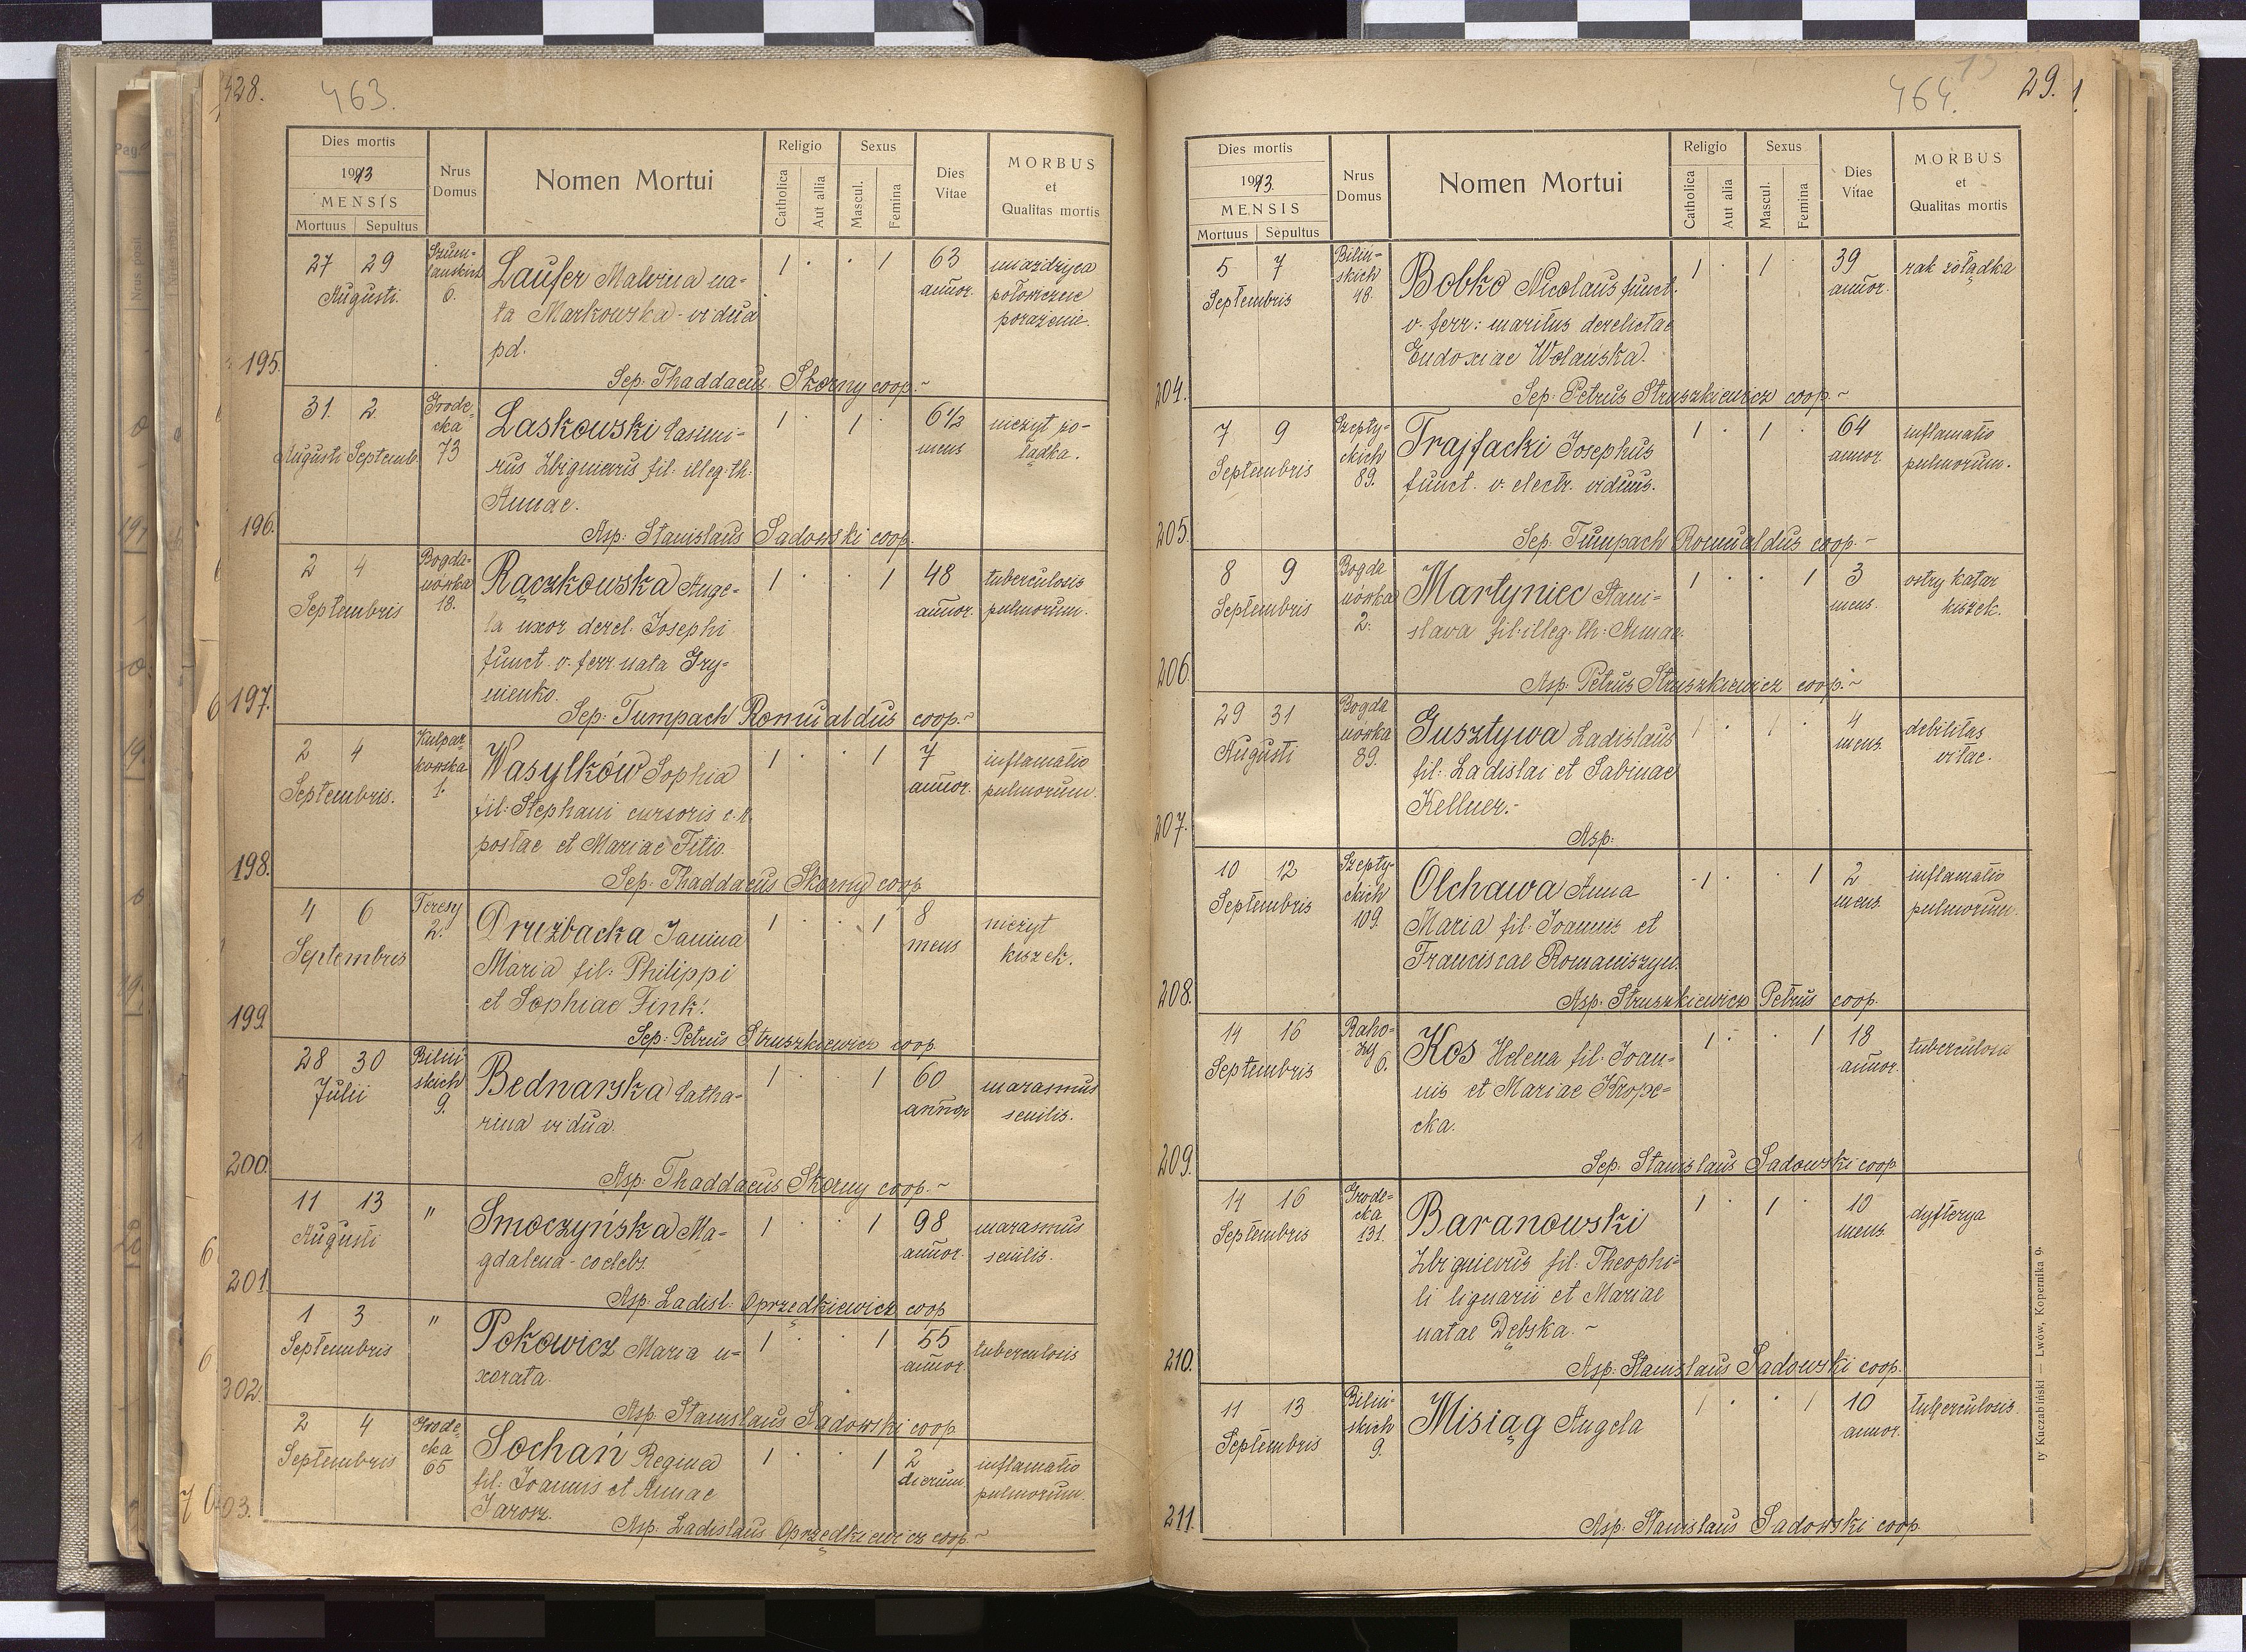 28.
463.
Dies mortis
1913
MENSIS
Mortuus Sepultus
Nrus Domus
Nomen Mortui
Religio
Catholica
Aut allia
Sexus
Mascul.
Femina
Dies Vitae
MORBUS
et
Qualitas mortis
195.
27 29
Augusti.
6.
Laufer Malvina na-
ta Markowska - vidua
pd.
1 . . 1
63
annor.
miażdżyca
porażenie.
Sep: Thaddaeus Skorny coop.~
196.
31. 2.
Augusti Septemb.
Grode-
cka
73
Laskowski Casimi-
rus Zbignievus fil: illeg. th.
Annae.
1 . 1 .
6 1/2
mens
nieżyt żo-
łądka.
Asp: Stanislaus Sadowski coop.
197.
2 4
Septembris
Bogda-
nówka
18.
Rączkowska Ange-
la uxor derel. Josephi
funct. v. ferr. nata Gry-
nienko.
1 . . 1
48
annor.
tuberculosis
pulmorum.
Sep: Tumpach Romualdus coop.~
198.
2 4
Septembris.
Kulpar-
kowska
1.
Wasylków Sophia
fil: Stephani cursoris c. r.
postae et Mariae Fitio.
1 . . 1
7
annor.
inflamatio
pulmorum.
Sep: Thaddaeus Skorny coop
199
4 6
Septembris
Teresy
2.
Drużbacka Janina
Maria fil: Philippi
et Sophiae Fink.
1 . . 1
8
mens
nieżyt
kiszek.
Sep: Petrus Struszkiewicz coop
200.
28 30
Julii
Biliń-
skich
9.
Bednarska Catha-
rina vidua.
1 . . 1
60
annor
marasmus
senilis.
Asp: Thaddaeus Skorny coop.~
201.
11 13
Augusti
"
Smoczyńska Ma-
gdalena - coelebs.
1 . . 1
98
annor.
marasmus
senilis.
Asp: Ladisl: Oprzędkiewicz coop
202.
1 3
Septembris
"
Pokowicz Maria u-
xorata.
1 . . 1
55
annor.
tuberculosis
Asp: Stanislaus Sadowski coop
03.
2 4
Septembris
Grode-
cka
65
Sochań Regina
fil: Joannis et Annae
Jarosz.
1 . . 1
2
dierum
inflamatio
pulmorum.
Asp: Ladislaus Oprzędkiewicz coop.~
464.
29.
Dies mortis
1913.
MENSIS
Mortuus Sepultus
Nrus Domus
Nomen Mortui
Religio
Catholica
Aut alia
Sexus
Mascul.
Femina
Dies Vitae
MORBUS
et
Qualitas mortis
204.
5 7
Septembris
Biliń-
skich
48.
Bobko Nicolaus funct.
v. ferr: maritus derelictae
Eudoxiae Wolańska.
1 . 1 .
39
annor.
rak żołądka
Sep: Petrus Struszkiewicz coop.~
205.
7 9
Septembris
Szepty-
ckich
89.
Trajfacki Josephus
funct. v. electr. viduus.
1 . 1 .
64
annor.
inflamatio
pulmorum.
Sep: Tumpach Romualdus coop.~
206.
8 9
Septembris
Bogda
nówka
2.
Martyniec Stani-
slava fil. illeg. th: Annae.
1 . . 1
3
mens.
ostry katar
kiszek.
Asp: Petrus Struszkiewicz coop.~
207.
29 31
Augusti
Bogda
nówka
89.
Gusztywa Ladislaus
fil: Ladislai et Sabinae
Kellner.-
1 . 1 .
4
mens.
debilitas
vitae.
Asp:
208.
10 12
Septembris
Szepty-
ckich
109.
Olchawa Anna
Maria fil: Joannis et
Franciscae Romaniszyn.
1 . . 1
2
mens.
inflamatio
pulmorum.
Asp: Struszkiewicz Petrus coop.
209.
14 16
Septembris
Raho-
zy
6.
Kos Helena fil: Joan-
nis et Mariae Krope-
cka.
1 . . 1
18
annor.
tuberculosis
Sep: Stanislaus Sadowski coop
210.
14 16
Septembris
Grode-
cka
131.
Baranowski
Zbignievus fil: Theophi-
li lignarii et Mariae
natae Dębska.~
1 . 1 .
10
mens.
dyfterya
Asp: Stanislaus Sadowski coop.
211.
11 13
Septembris
Biliń-
skich
9.
Misiąg Angela
1 . . 1
10
annor.
tuberculosis.
Asp: Stanislaus Sadowski coop.
ty Kuczabiński — Lwów, Kopernika 9.